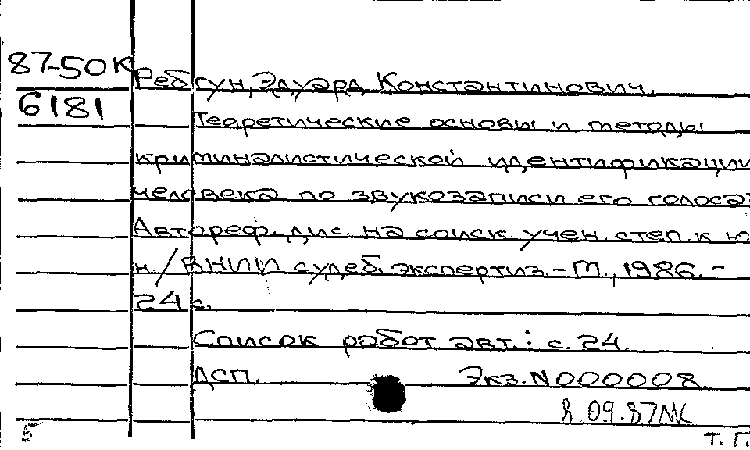 87-50К Ребгун, Эдуард Константинович.
6181 Теоретические основы и методы
криминалистической идентификации
человека по звукозаписи его голоса:
Автореф. дис. на соиск. учен. степ. к. ю.
н. / ВНИИ судеб. экспертиз. - М., 1986. -
24 с.
Список работ авт.: с. 24
ДСП. Экз. N 000008
8.09.87
5 т. п.